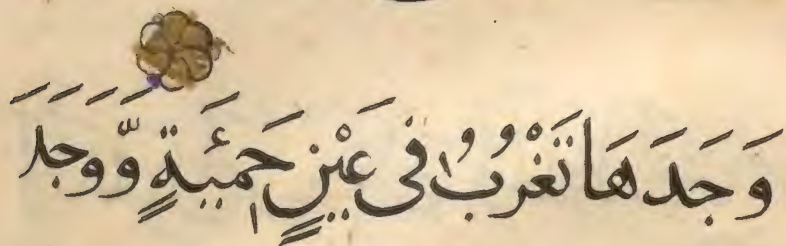 وَجَدَهَا تَغْرُبُ فِى عَيْنٍ حَمِئَةٍ وَّوَجَدَ